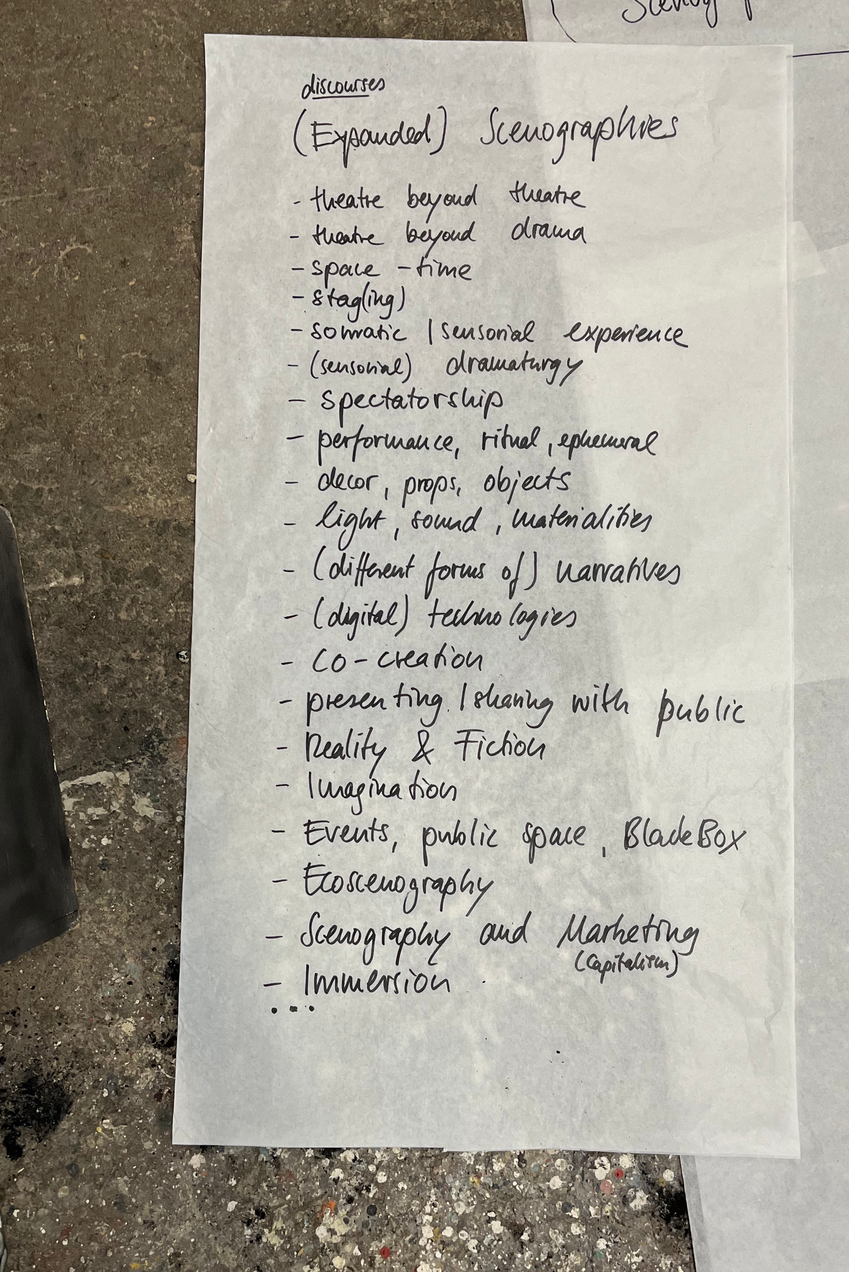 Scenog
discourses
(Expanded) Scenographies
- theatre beyond theatre
- theatre beyond drama
- space - time
- stag(ing)
- somatic / sensorial experience
- (sensorial) dramaturgy
- spectatorship
- performance, ritual, ephemeral
- decor, props, objects
- light, sound, materialities
- (different forms of) narratives
- (digital) technologies
- co-creation
- presenting / sharing with public
- Reality & Fiction
- Imagination
- Events, public space, BlackBox
- Ecoscenography
- Scenography and Marketing
(Capitalism)
- Immersion
...